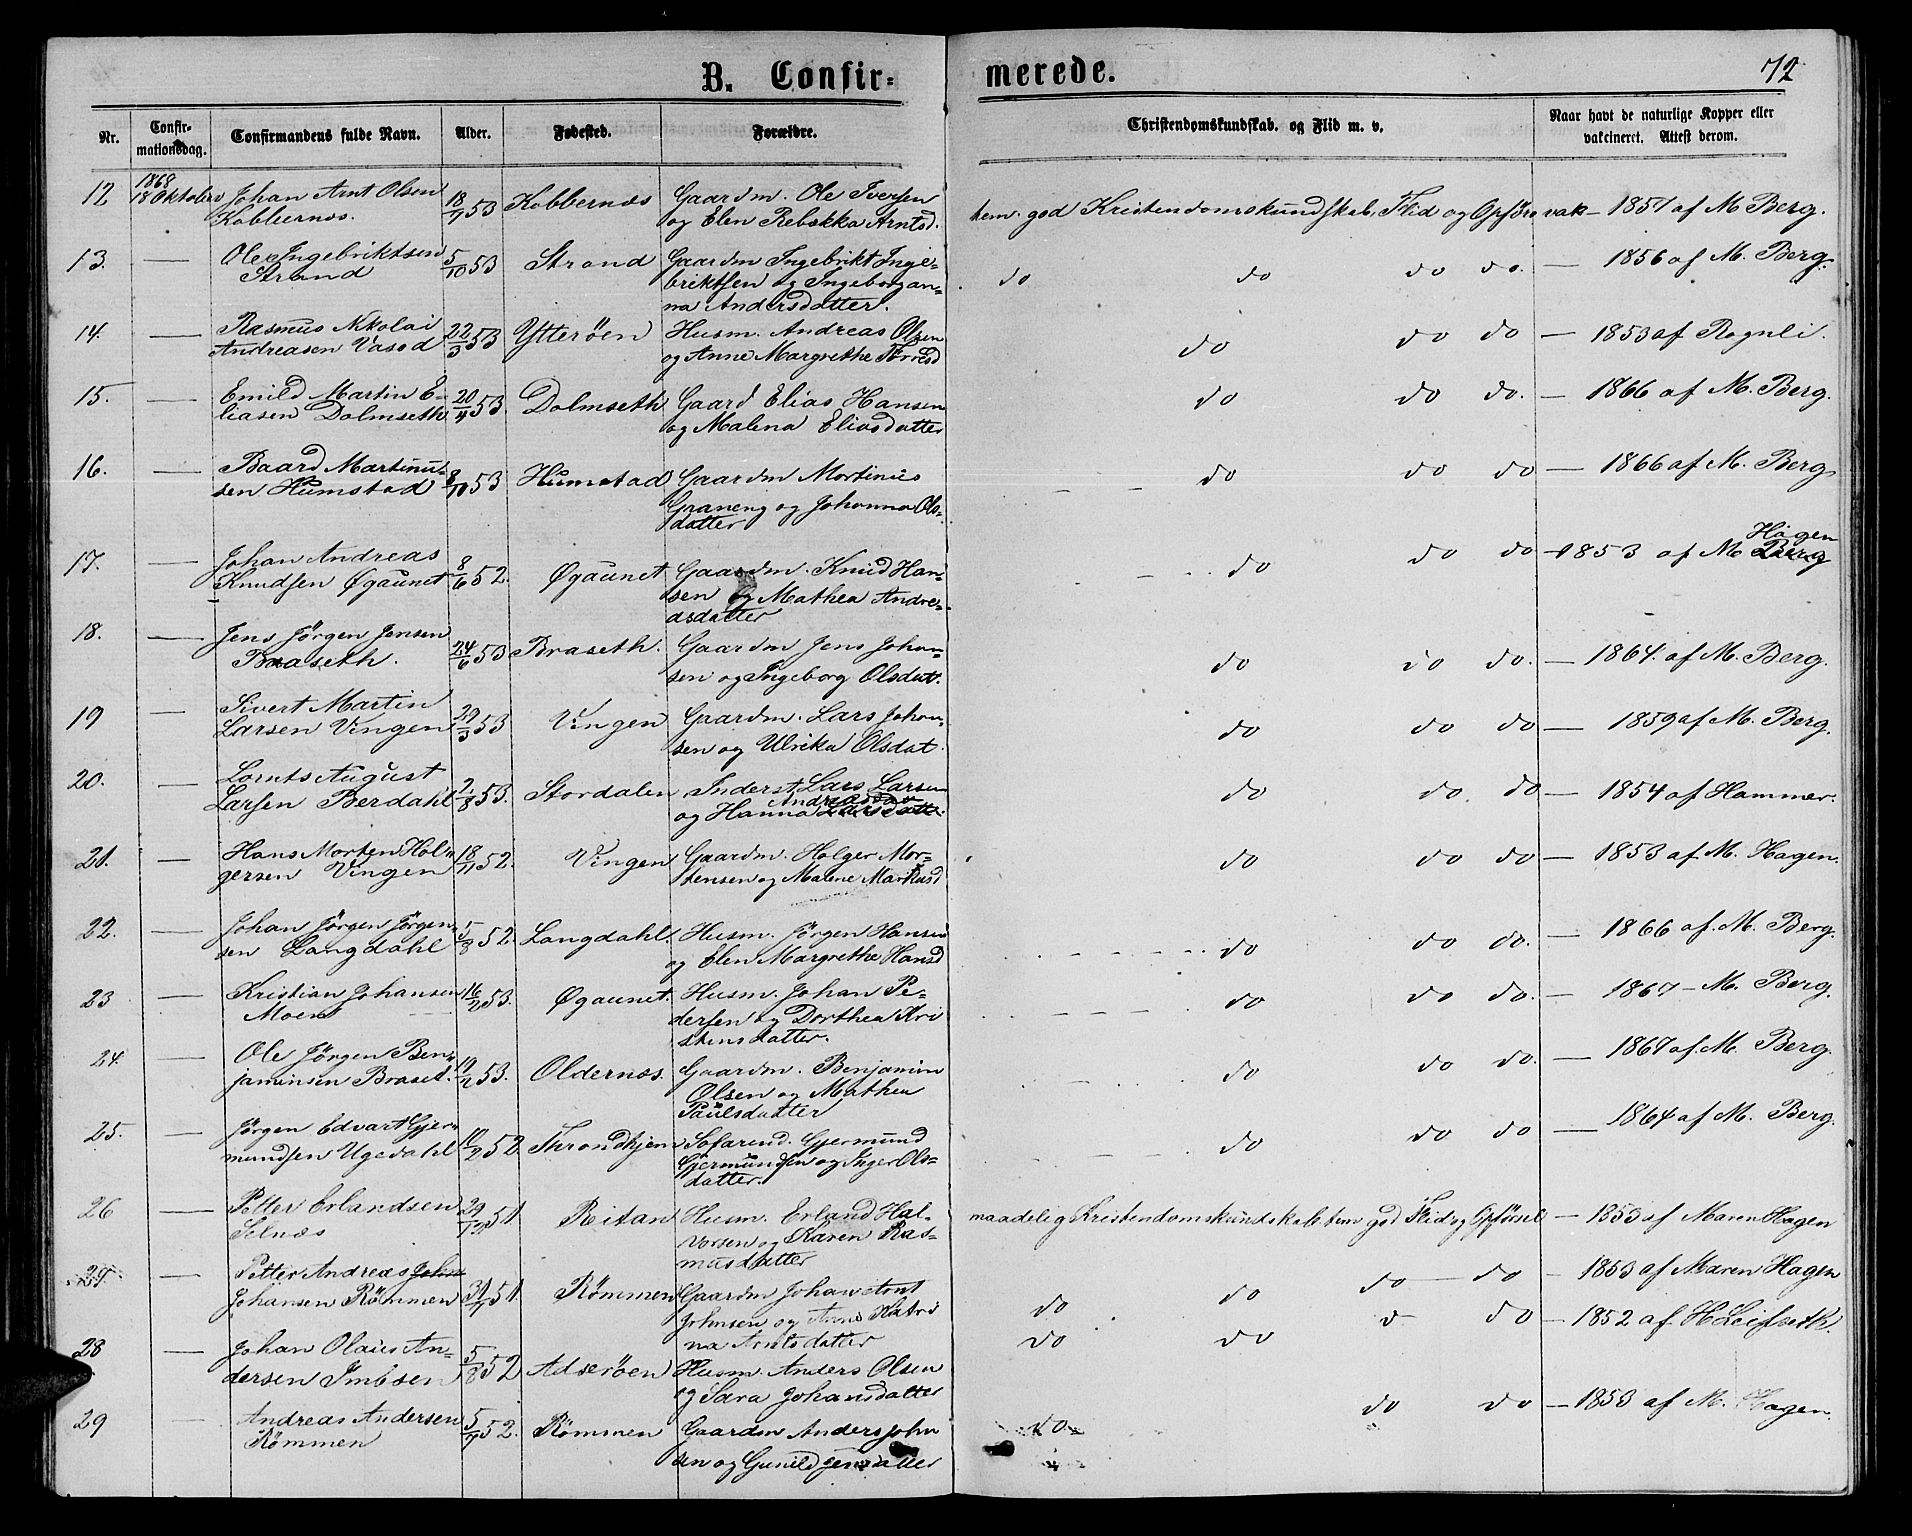 B. Confir= merede. 72
Nr. Confir-mationsdag. Confirmandens fulde Navn. Alder. Fødested. Forældre. Christendomskundskab. og Flid m. v. Naar havt de naturlige Kopper eller vakcineret. Attest derom.
12 1868 18 Oktober Johan Arnt Olsen 18/7 53 Kobbernæs Gaardm. Ole Iversen tem. god Kristendomskundskab, Flid og Opførs vak - 1857 af M Berg.
Kobbernæs. og Elen Rebekka Arntsd.
13. — Ole Ingebriktsen 5/10 53 Strand Gaardm Ingebrikt Inge- do do do do. — 1856 af M. Berg.
Strand briktsen og Ingeborgan-
na Andersdatter.
14. — Rasmus Nikolai 22/3 53 Ytterøen Husm. Andreas Olsen do do do — 1853 af Rognli.
Andreasen Vasod og Anne Margrethe
15. — Emild Martin E- 20/4 53. Dolmseth Gaard Elias Hansen do do do. — 1866 af M. Berg.
liasen Dolmseth og Malena Eliasdatter
16. — Baard Martinu- 8/10 53 Humstad Gaardm Mortinus do do do — 1866 af M. Berg
sen Humstad Graneng og Johanna Ols-
datter
17. — Johan Andreas 8/6 52. Øgaunet Gaardm. Knud Han- do do do — 1853 af M Berg Hagen
Knudsen Øgaunet sen og Mathea Andre-
asdatter
18. — Jens Jörgen Jensen 24/6 53 Braseth. Gaardm Jens Johan- do do do. — 1864. af M. Berg.
Braaseth. sen og Ingeborg Olsdatt.
19 — Sivert Martin 29/3 53 Vingen Gaardm. Lars Johan- do do do — 1859 af M. Berg.
Larsen Vingen sen og Ulrika Olsdat.
20. — Lornts August 2/8 53. Stordalen Inderst Lars Larsen do do do — 1854 af Hammer.
Larsen Berdahl og Hanna Larsdatter.
21. — Hans Morten Hol- 18/11 52. Vingen Gaardm. Holger Mor- do do do — 1853 af M. Hagen.
gersen Vingen tensen og Malene Markusd
22. — Johan Jörgen Jörgen- 5/8 52. Langdahl. Husm. Jörgen Hansen do do do. — 1866 af M. Berg.
sen Langdahl og Elen Margrethe Hansd
23 — Kristian Johansen 16/2 53. Øgaunet. Husm. Johan Pe- do do do. — 1867 - M. Berg.
Moen dersen og Dorthea Kri
stensdatter.
24. — Ole Jörgen Ben- 19/2 53. Oldernæs. Gaardm. Benjamin do do do. — 1867 af M. Berg.
jaminsen Braset. Olsen og Mathea
Paulsdatter
25. — Jørgen Edvart Gjer- 10/2 52. Throndhjem Sofarend. Gjermund do do do — 1864 af M. Berg.
mundsen Ugedahl Gjermundsen og Inger Ols-
datter.
26 — Petter Erlandsen 29/12 51 Reitan Husm. Erland Hal- maadelig Kristendomskundskab tem god Flid og Opførsel — 1853 af Maren Hagen
Selnæs vorsen og Karen Ras-
musdatter
27. — Petter Andreas John 31/7 51. Römmen Gaardm Johan Arnt do do do do — 1853 af Maren Hagen
Johansen Römmen Johnsen og Anne Katri
na Arntsdatter
28 — Johan Olaus An- 5/8 52 Adserøen Husm. Anders Olsen do do do do — 1852 af H Leifseth.
dersen Imbsen og Sara Johansdatter
29 — Andreas Andersen 5/7 52. Römmen Gaardm Anders John do do do — 1853 af M. Hagen.
Römmen sen og Gunild Jensdatter